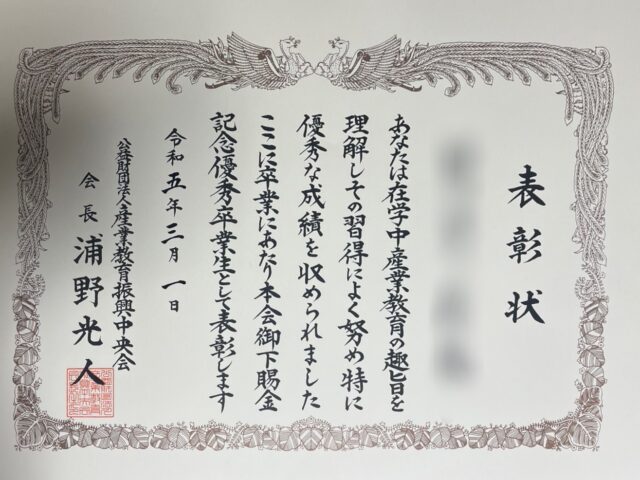 表彰状
あなたは在学中産業教育の趣旨を
理解しその習得によく努め特に
優秀な成績を収められました
ここに卒業にあたり本会御下賜金
記念優秀卒業生として表彰します
令和五年三月一日
公益財団法人産業教育振興中央会
会長 浦野光人